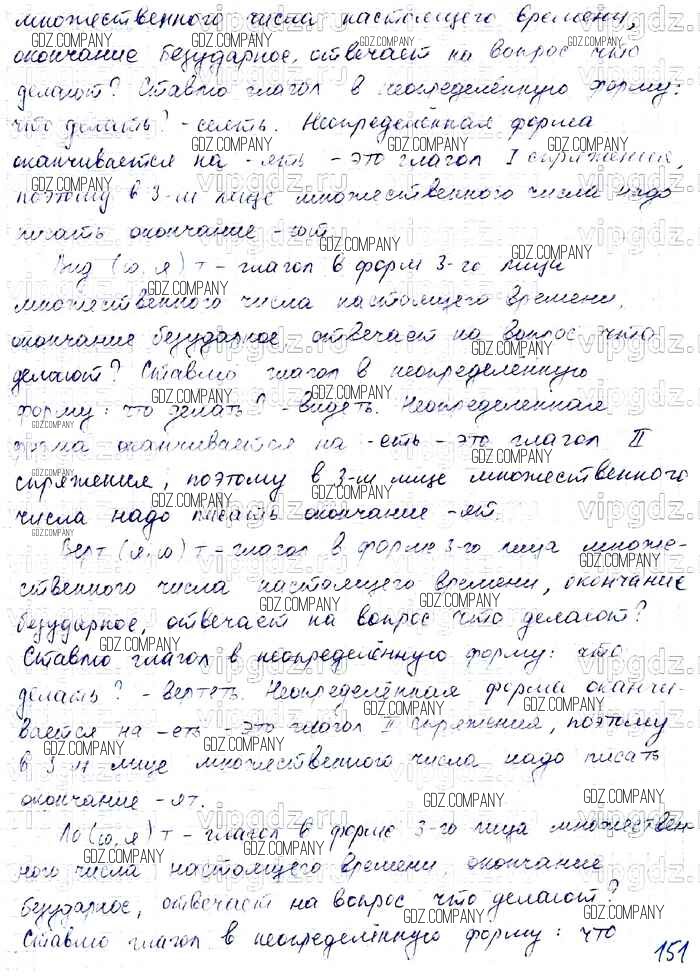 множественного числа настоящего времени,
окончание безударное, отвечает на вопрос что
делают? Ставлю глагол в неопределённую форму:
что делать? - сеять. Неопределённая форма
оканчивается на -ять - это глагол I спряжения,
поэтому в 3-м лице множественного числа надо
писать окончание -ют.
Вид (ю, я) т - глагол в форм 3-го лица
множественного числа настоящего времени,
окончание безударное, отвечает на вопрос что
делают? Ставлю глагол в неопределённую
форму: что делать? - видеть. Неопределённая
форма оканчивается на -еть - это глагол II
спряжения, поэтому в 3-м лице множественного
числа надо писать окончание -ят.
Верт (я, ю) т - глагол в форме 3-го лица множе-
ственного числа настоящего времени, окончание
безударное, отвечает на вопрос что делают?
Ставлю глагол в неопределённую форму: что
делать? - вертеть. Неопределённая форма оканчи-
вается на -еть - это глагол II спряжения, поэтому
в 3-м лице множественного числа надо писать
окончание -ят.
Ло (ю, я) т - глагол в форме 3-го лица множествен-
ного числа настоящего времени, окончание
безударное, отвечает на вопрос что делают?
Ставлю глагол в неопределённую форму: что
151
GDZ.COMPANY
vipgdz.ru